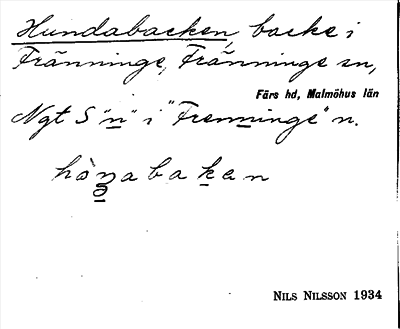 Hundabacken, backe i
Fränninge, Fränninge sn,
Färs hd, Malmöhus län
Ngt S "n" i "Frenninge" n.
hònabakan
NILS NILSSON 1934